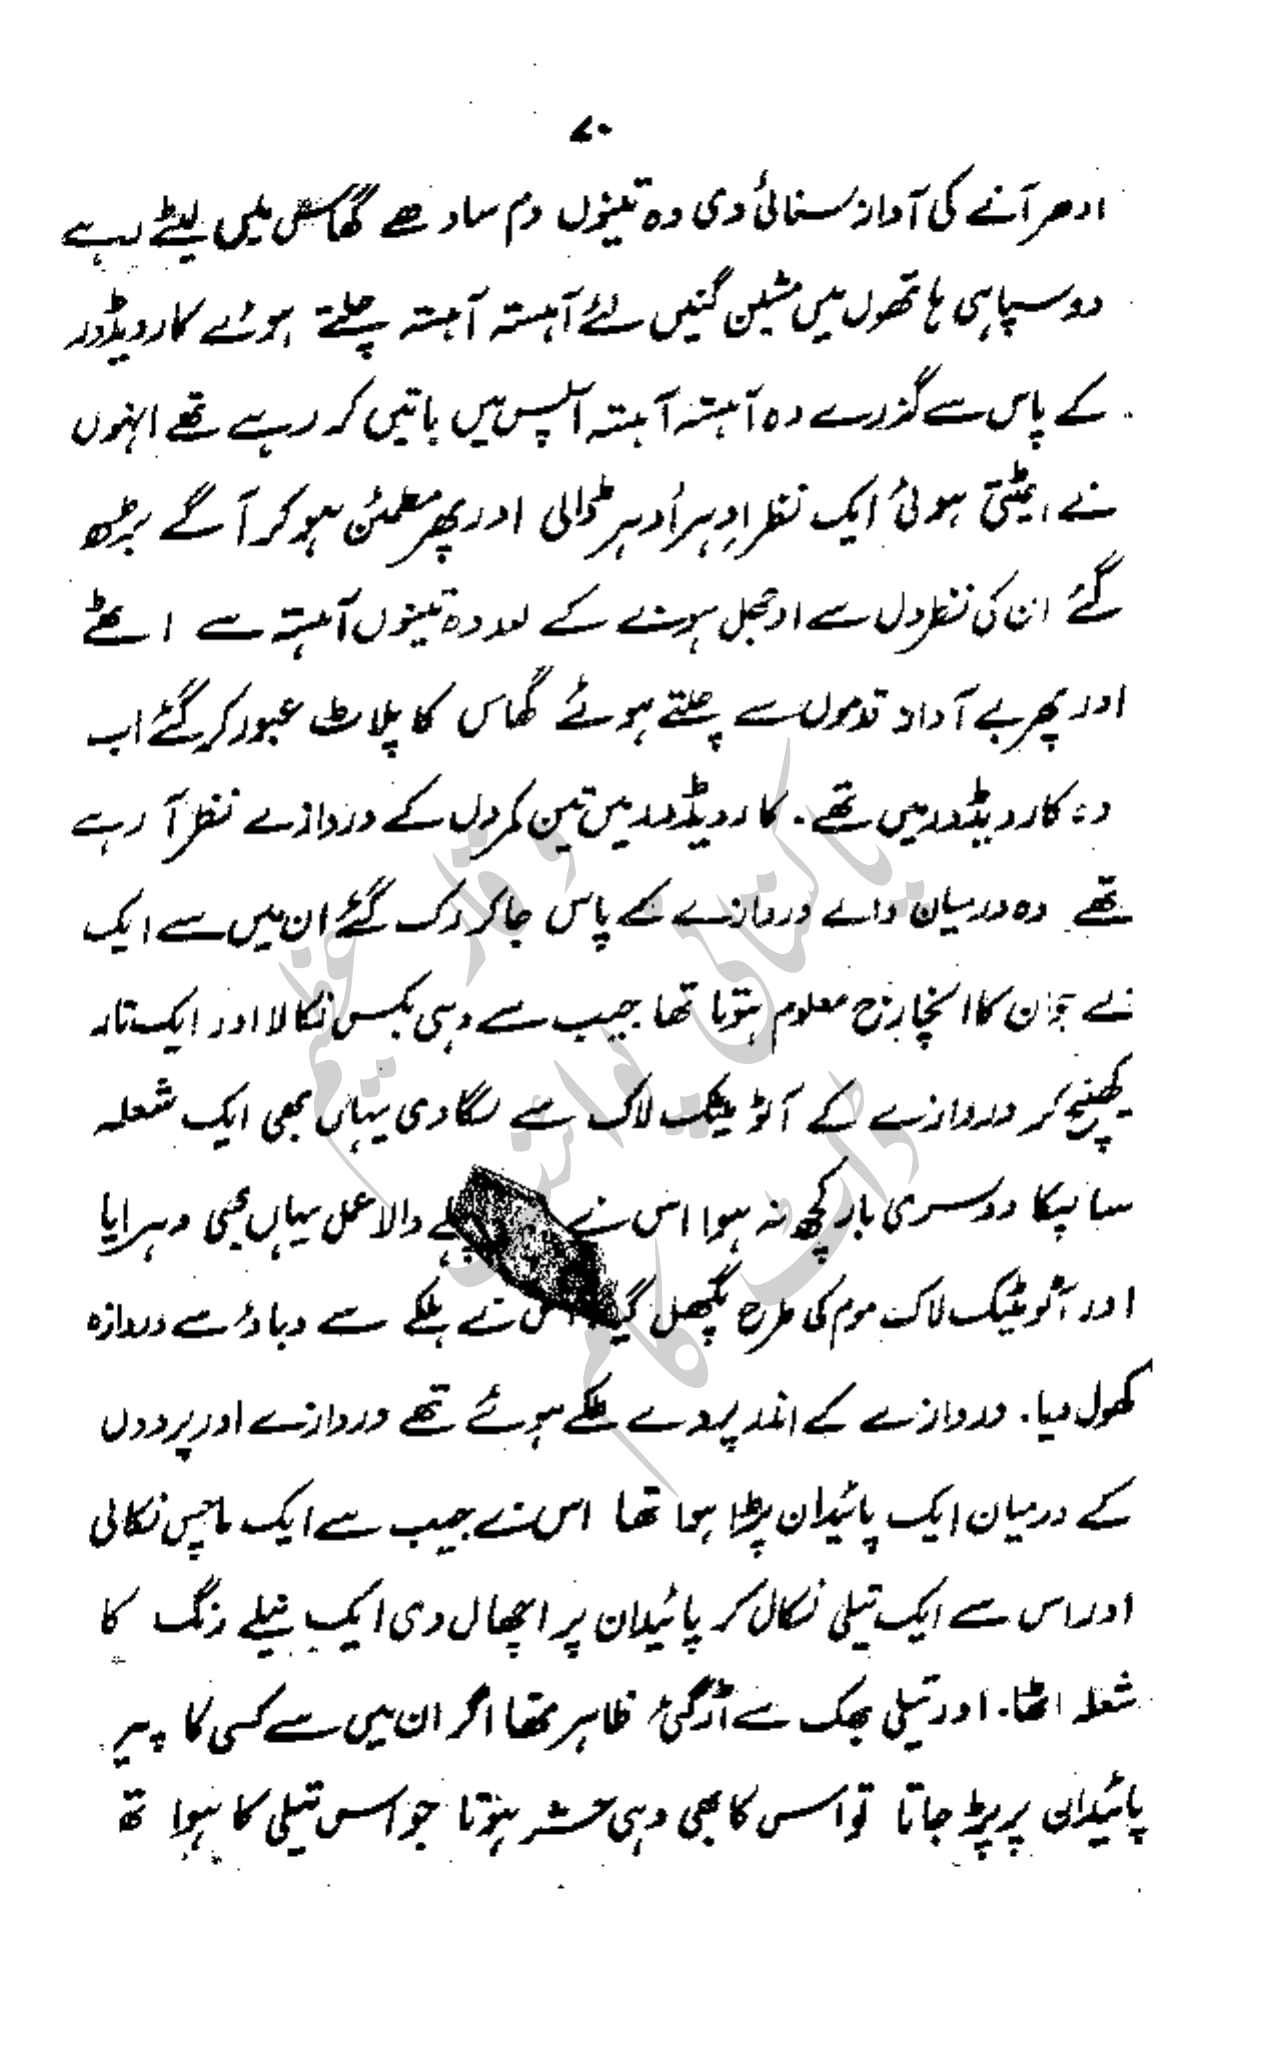 ۷۰
ادھر آنے کی آواز سنائی دی وہ تینوں دم سادھے گھاس میں لیٹے رہے
دو سپاہی ہاتھوں میں مشین گنیں لئے آہستہ آہستہ چلتے ہوئے کاریڈور
کے پاس سے گذرے وہ آہستہ آہستہ آپس میں باتیں کر رہے تھے انہوں
نے اچٹتی ہوئی ایک نظر اِدہر اُدہر ڈالی اور پھر مطمئن ہو کر آگے بڑھ
گئے ان کی نظروں سے اوجھل ہونے کے بعد وہ تینوں آہستہ سے اٹھے
اور پھر بے آواز قدموں سے چلتے ہوئے گھاس کا پلاٹ عبور کر گئے اب
وہ کاریڈور میں تھے۔ کاریڈور میں تین کمروں کے دروازے نظر آ رہے
تھے وہ درمیان والے دروازے کے پاس جا کر رک گئے ان میں سے ایک
نے جو ان کا انچارج معلوم ہوتا تھا جیب سے وہی بکس نکالا اور ایک تار
کھینچ کر دروازے کے آٹومیٹک لاک سے لگا دی یہاں بھی ایک شعلہ
سا لپکا دوسری بار کچھ نہ ہوا اس نے پہلے والا عمل یہاں بھی دہرایا
اور آٹومیٹک لاک موم کی طرح پگھل گیا اس نے ہلکے سے دباؤ سے دروازہ
کھول دیا۔ دروازے کے اندر پردے لٹکے ہوئے تھے دروازے اور پردوں
کے درمیان ایک پائیدان پڑا ہوا تھا اس نے جیب سے ایک ماچس نکالی
اور اس سے ایک تیلی نکال کر پائیدان پر اچھال دی ایک نیلے رنگ کا
شعلہ اٹھا۔ اور تیلی بھک سے اڑ گئی ظاہر تھا اگر ان میں سے کسی کا پیر
پائیدان پر پڑ جاتا تو اس کا بھی وہی حشر ہوتا جو اس تیلی کا ہوا تھ
پاکستانی پوائنٹ
ڈاٹ کام
وقار عظیم